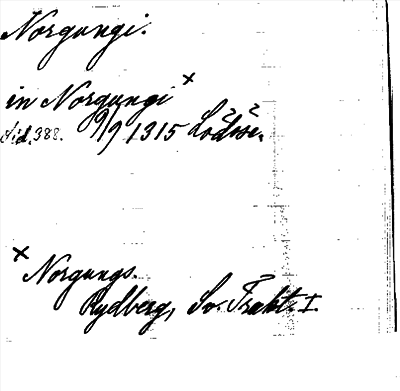 Norgungi.
in Norgungi x
sid. 388. 9/9 1315 Lödöse.
x Norgungs.
Rydberg, Sv. Trakt. I.